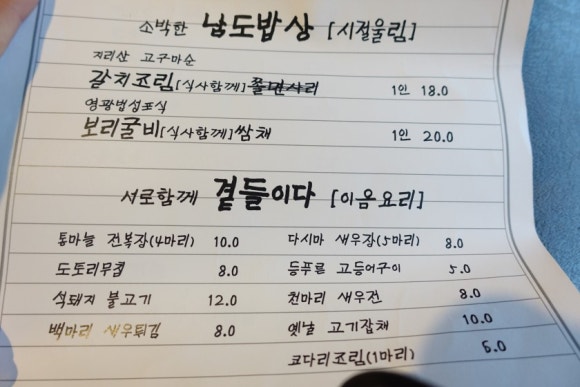 소박한 남도밥상 [시절울림]
지리산 고구마순
갈치조림[식사함께]쫄면사리 1인 18.0
영광법성포식
보리굴비[식사함께]쌈채 1인 20.0
서로함께 곁들이다 [이음요리]
통마늘 전복장(4마리) 10.0 다시마 새우장(5마리) 8.0
도토리무침 8.0 등푸른 고등어구이 5.0
석돼지 불고기 12.0 천마리 새우전 8.0
백마리 새우튀김 8.0 옛날 고기잡채 10.0
코다리조림(1마리) 6.0